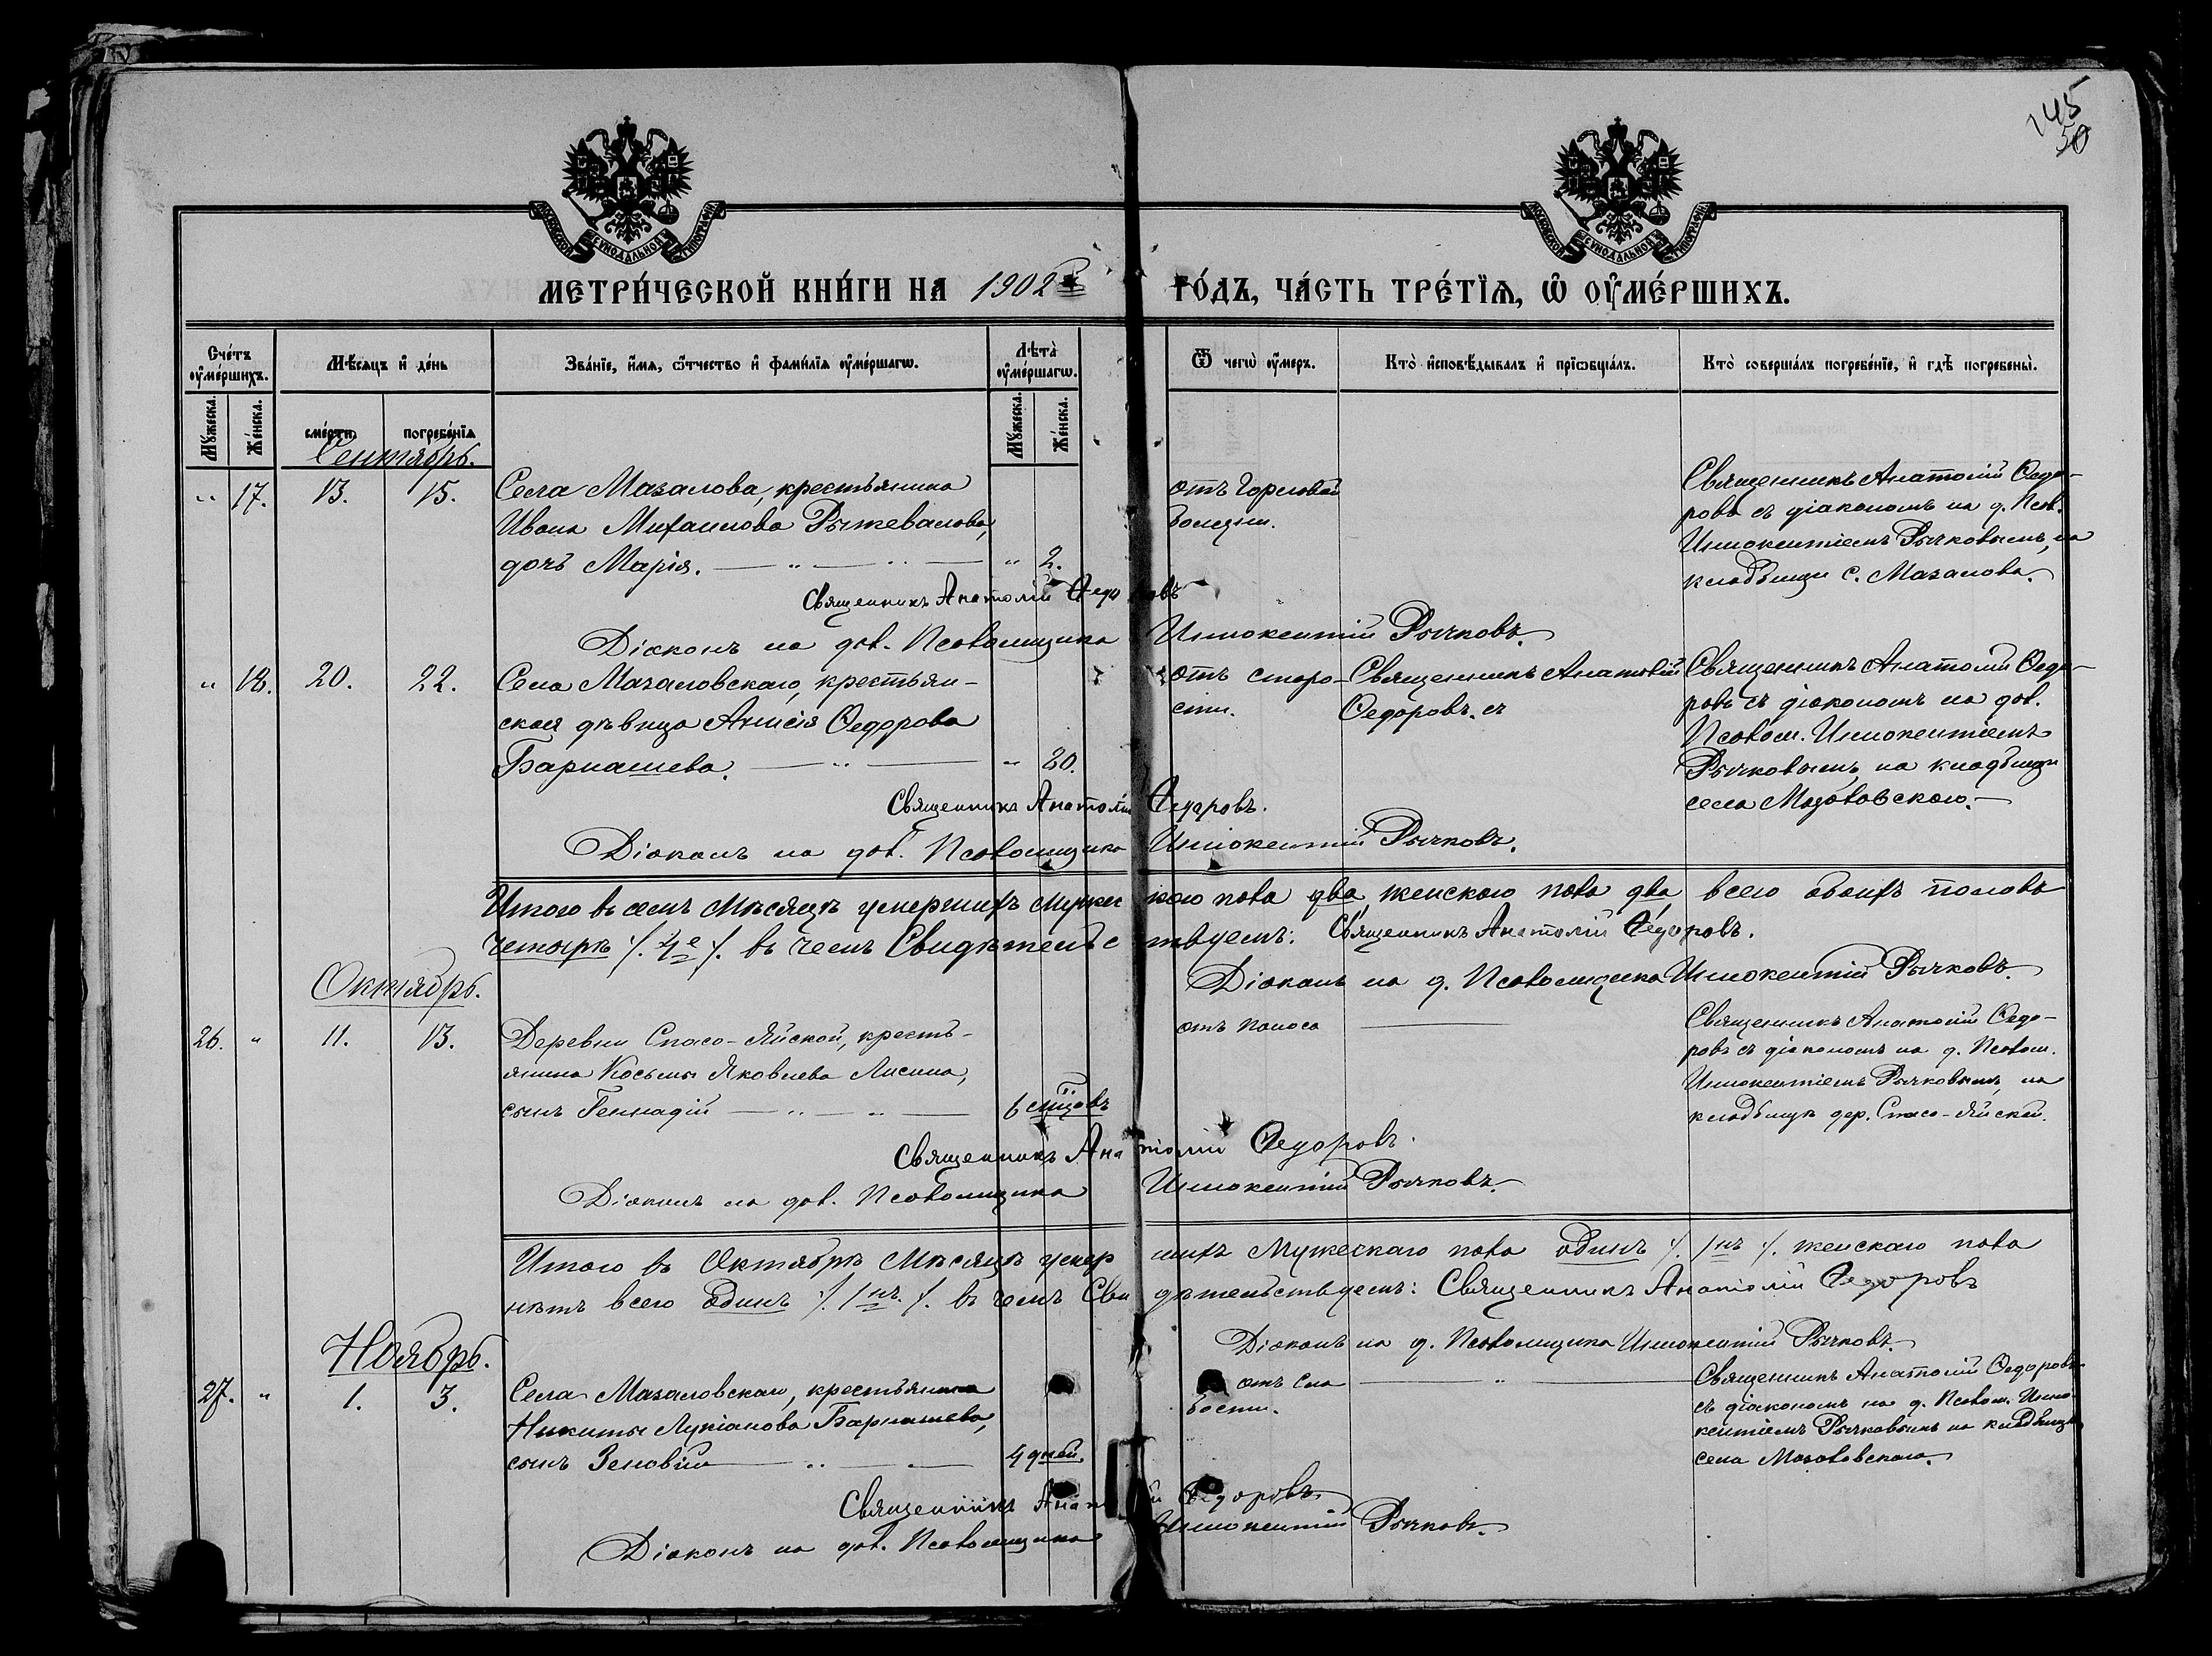 145
50
МОСКОВСКОЙ СѴНОДАЛЬНОЙ ТИПОГРАФІИ
МОСКОВСКОЙ СѴНОДАЛЬНОЙ ТИПОГРАФІИ
МЕТРИ́ЧЕСКОЙ КНИ́ГИ НА 1902 ГО́ДЪ, ЧА́СТЬ ТРЕ́ТЇѦ, Ѡ ОУМЕ́РШИХЪ.
Сче́тъ оуме́ршихъ.
Мѣ́сяцъ и де́нь
Зва́нїе, и́мѧ, ѻ́тчество и фами́лїѧ оуме́ршагѡ.
Лѣта̀ оуме́ршагѡ.
Ѿ чегѡ̀ оу́меръ.
Кто̀ исповѣ́дывалъ и прїѡбща́лъ.
Кто̀ соверша́лъ погребе́нїе, и гдѣ̀ погребены̀.
Мꙋ́жеска.
Же́нска.
сме́рти.
погребе́нїѧ
Мꙋ́жеска.
Же́нска.
Сентябрь.
" 17. 13. 15.
Села Мазалова, крестьянина
Ивана Михаилова Рыжевалова,
дочь Марія. — " — " — " 2.
отъ горловой
болезни.
Священникъ Анатолій Ѳедо-
ровъ съ діакономъ на д. Псал.
Иннокентіемъ Рычковымъ, на
кладбищи с. Мазалова.
Священникъ Анатолій Ѳедоровъ
Діаконъ на дол. Псаломщика Иннокентій Рычковъ.
" 18. 20. 22.
Села Мазаловскаго, крестьян-
ская дѣвица Анисія Ѳедорова
Барнашева. — " — " 20.
отъ старо-
сти.
Священникъ Анатолій
Ѳедоровъ. съ
Священникъ Анатолій Ѳедо-
ровъ съ діакономъ на дол.
Псалом. Иннокентіемъ
Рычковымъ, на кладбищи
села Мазаловскаго.
Священникъ Анатолій Ѳедоровъ.
Діаконъ на дол. Псаломщика Иннокентій Рычковъ.
Итого въ семъ Мѣсяцѣ умершихъ мужескаго пола два, женскаго пола два, всего обоихъ половъ
четырѣ /. 4е /. въ чемъ Свидѣтельствуемъ: Священникъ Анатолій Ѳедоровъ.
Діаконъ на д. Псаломщика Иннокентій Рычковъ.
Октябрь.
26. " 11. 13.
Деревни Спасо-Яйской, кресть-
янина Косьмы Яковлева Лисина,
сынъ Геннадій — " — " — 6 мцовъ
отъ поноса
Священникъ Анатолій Ѳедо-
ровъ съ діакономъ на д. Псалом.
Иннокентіемъ Рычковымъ на
кладбищѣ дер. Спасо-Яйской.
Священникъ Анатолій Ѳедоровъ.
Діаконъ на дол. Псаломщика Иннокентій Рычковъ.
Итого въ Октябрѣ Мѣсяцѣ умершихъ Мужескаго пола одинъ /. 1нъ /. женскаго пола
нѣтъ всего одинъ /. 1нъ. /. въ чемъ Свидѣтельствуемъ: Священникъ Анатолій Ѳедоровъ
Діаконъ на д. Псаломщика Иннокентій Рычковъ.
Ноябрь.
27. " 1. 3.
Села Мазаловскаго, крестьянина
Никиты Лукіанова Барнашева,
сынъ Зеновій — " — " — 4 дней.
отъ сла
бости.
Священникъ Анатолій Ѳедоровъ
съ діакономъ на д. Псалом. Инно-
кентіемъ Рычковымъ на кладбищѣ
села Мазаловскаго.
Священникъ Анатолій Ѳедоровъ
Діаконъ на дол. Псаломщика Иннокентій Рычковъ.